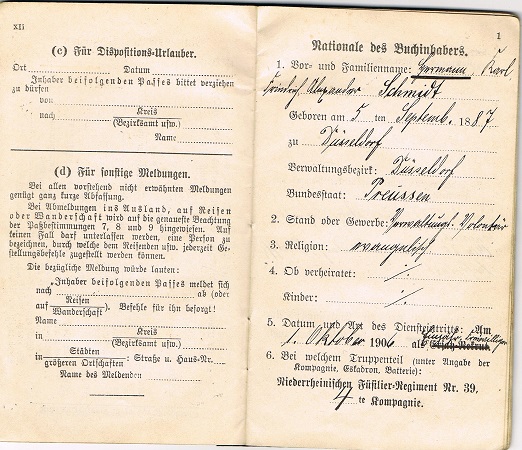 xii
(c) Für Dispositions-Urlauber.
Ort Datum
Inhaber beifolgenden Passes bittet verziehen
zu dürfen
von
nach Kreis
(Bezirksamt usw.)
Name
(d) Für sonstige Meldungen.
Bei allen vorstehend nicht erwähnten Meldungen
genügt ganz kurze Abfassung.
Bei Abmeldungen ins Ausland, auf Reisen
oder Wanderschaft wird auf die genaueste Beachtung
der Paßbestimmungen 7, 8 und 9 hingewiesen. Auf
keinen Fall darf unterlassen werden, eine Person zu
bezeichnen, durch welche dem Reisenden usw. jederzeit Ge-
stellungsbefehle zugestellt werden können.
Die bezügliche Meldung würde lauten:
„Inhaber beifolgenden Passes meldet sich
nach ab (oder
auf Reisen
Wanderschaft). Befehle für ihn besorgt!
Name
in Kreis
(Bezirksamt usw.)
in Städten
größeren Ortschaften: Straße u. Haus-Nr.
Name des Meldenden
1
Nationale des Buchinhabers.
1. Vor- und Familienname: Hermann, Karl
Friedrich Alexander Schmidt
Geboren am 5 ten Septemb. 1887
zu Düsseldorf
Verwaltungsbezirk: Düsseldorf
Bundesstaat: Preussen
2. Stand oder Gewerbe: Verwaltungs Volontär
3. Religion: evangelisch
4. Ob verheiratet: /.
Kinder: /.
5. Datum und Art des Diensteintritts: Am
1. Oktober 1906 als Einjähr. Freiwilliger
6. Bei welchem Truppenteil (unter Angabe der
Kompagnie, Eskadron, Batterie):
Niederrheinischen Füsilier-Regiment Nr. 39.
4 te Kompagnie.